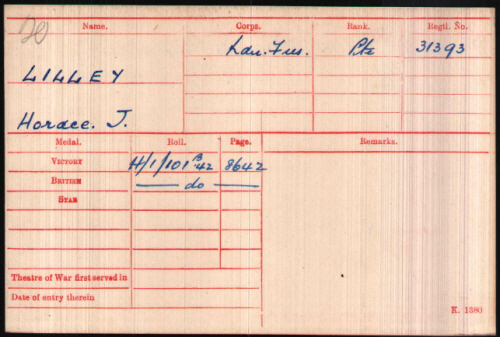 20
Name. Corps. Rank. Regtl. No.
Lan. Fus. Pte 31393
LILLEY
Horace. J.
Medal. Roll. Page. Remarks.
VICTORY H/1/101 B42 8642
BRITISH — do —
STAR
Theatre of War first served in
Date of entry therein
K. 1380